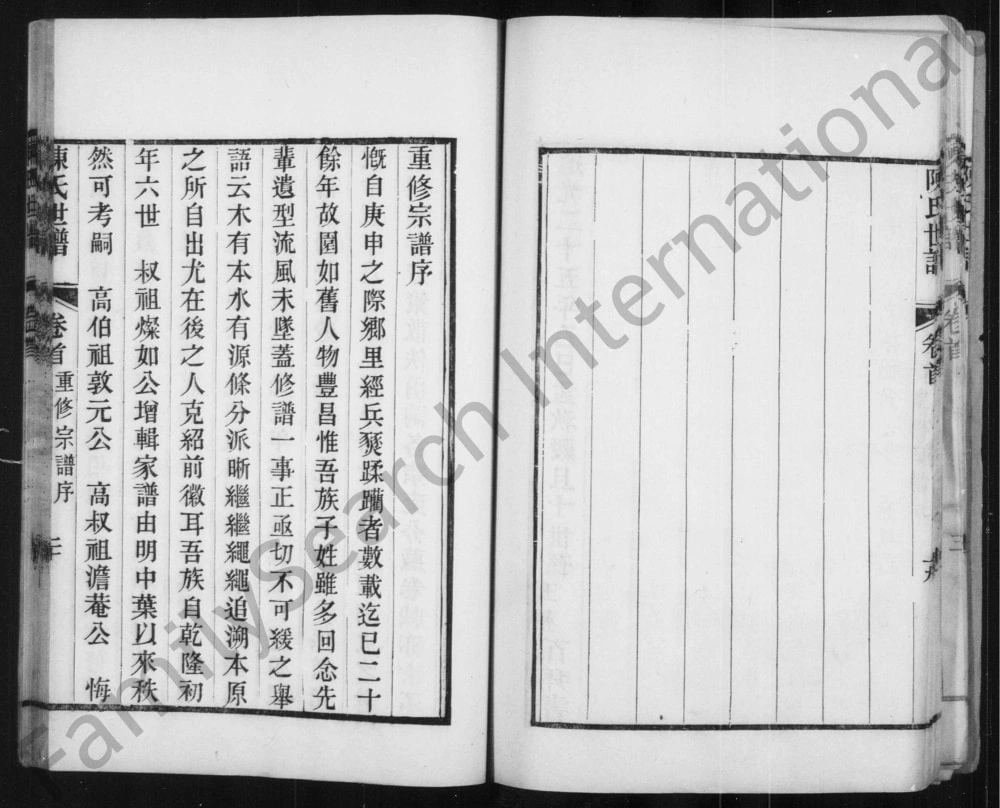 重修宗譜序
慨自庚申之際鄉里經兵燹蹂躪者數載迄已二十
餘年故園如舊人物豐昌惟吾族子姓雖多回念先
輩遺型流風未墜蓋修譜一事正亟切不可緩之舉
語云木有本水有源條分派晰繼繼繩繩追溯本原
之所自出尤在後之人克紹前徽耳吾族自乾隆初
年六世 叔祖燦如公增輯家譜由明中葉以來秩
然可考嗣 高伯祖敦元公 高叔祖澹菴公 悔
陳氏世譜 卷首 重修宗譜序
陳氏世譜 卷首
FamilySearch International